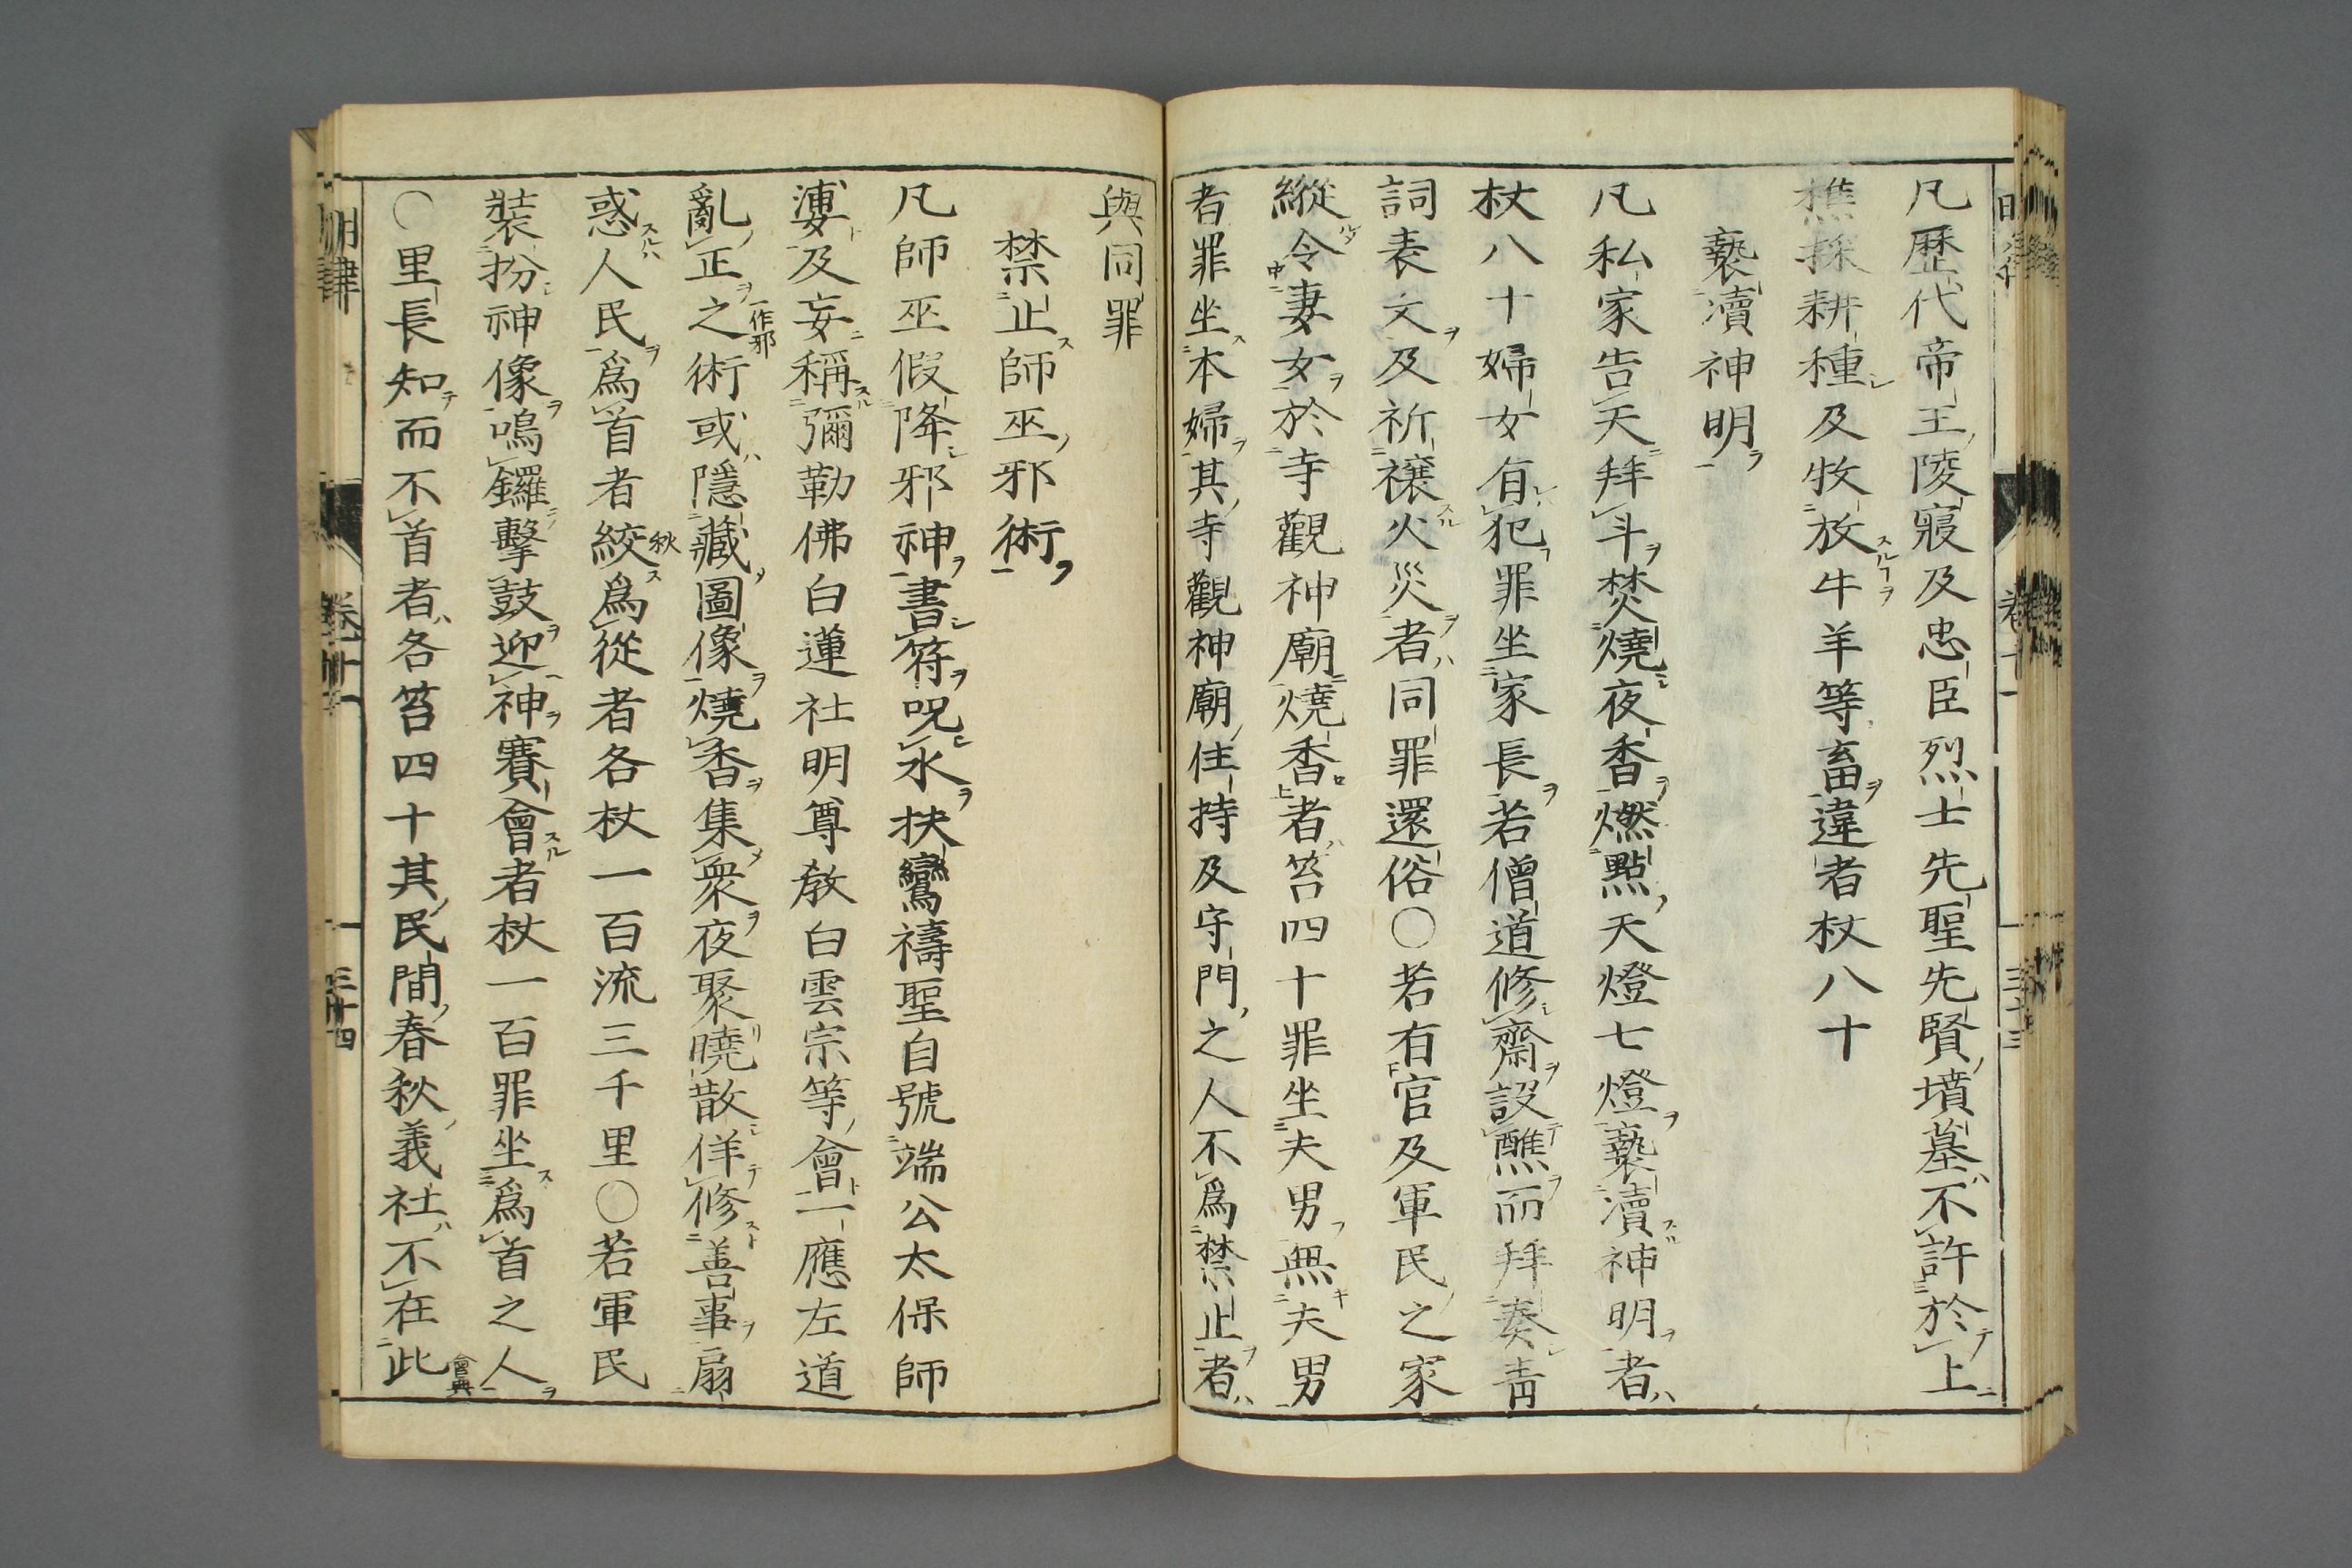 凡歷代帝王陵寢及忠臣烈士先聖先賢墳墓不許於上
樵採耕種及牧放牛羊等畜違者杖八十
褻瀆神明
凡私家告天拜斗焚燒夜香燃點天燈七燈褻瀆神明者
杖八十婦女有犯罪坐家長若僧道修齋設醮而拜奏青
詞表文及祈禳火災者同罪還俗○若有官及軍民之家
縱令妻女於寺觀神廟燒香者笞四十罪坐夫男無夫男
者罪坐本婦其寺觀神廟住持及守門之人不爲禁止者
與同罪
禁止師巫邪術
凡師巫假降邪神書符呪水扶鸞禱聖自號端公太保師
婆及妄稱彌勒佛白蓮社明尊敎白雲宗等會一應左道
亂正之術或隱藏圖像燒香集衆夜聚曉散佯修善事扇
一作邪
惑人民爲首者絞爲從者各杖一百流三千里○若軍民
秋
裝扮神像鳴鑼擊鼓迎神賽會者杖一百罪坐爲首之人
○里長知而不首者各笞四十其民間春秋義社不在此
會典
明律
三十四